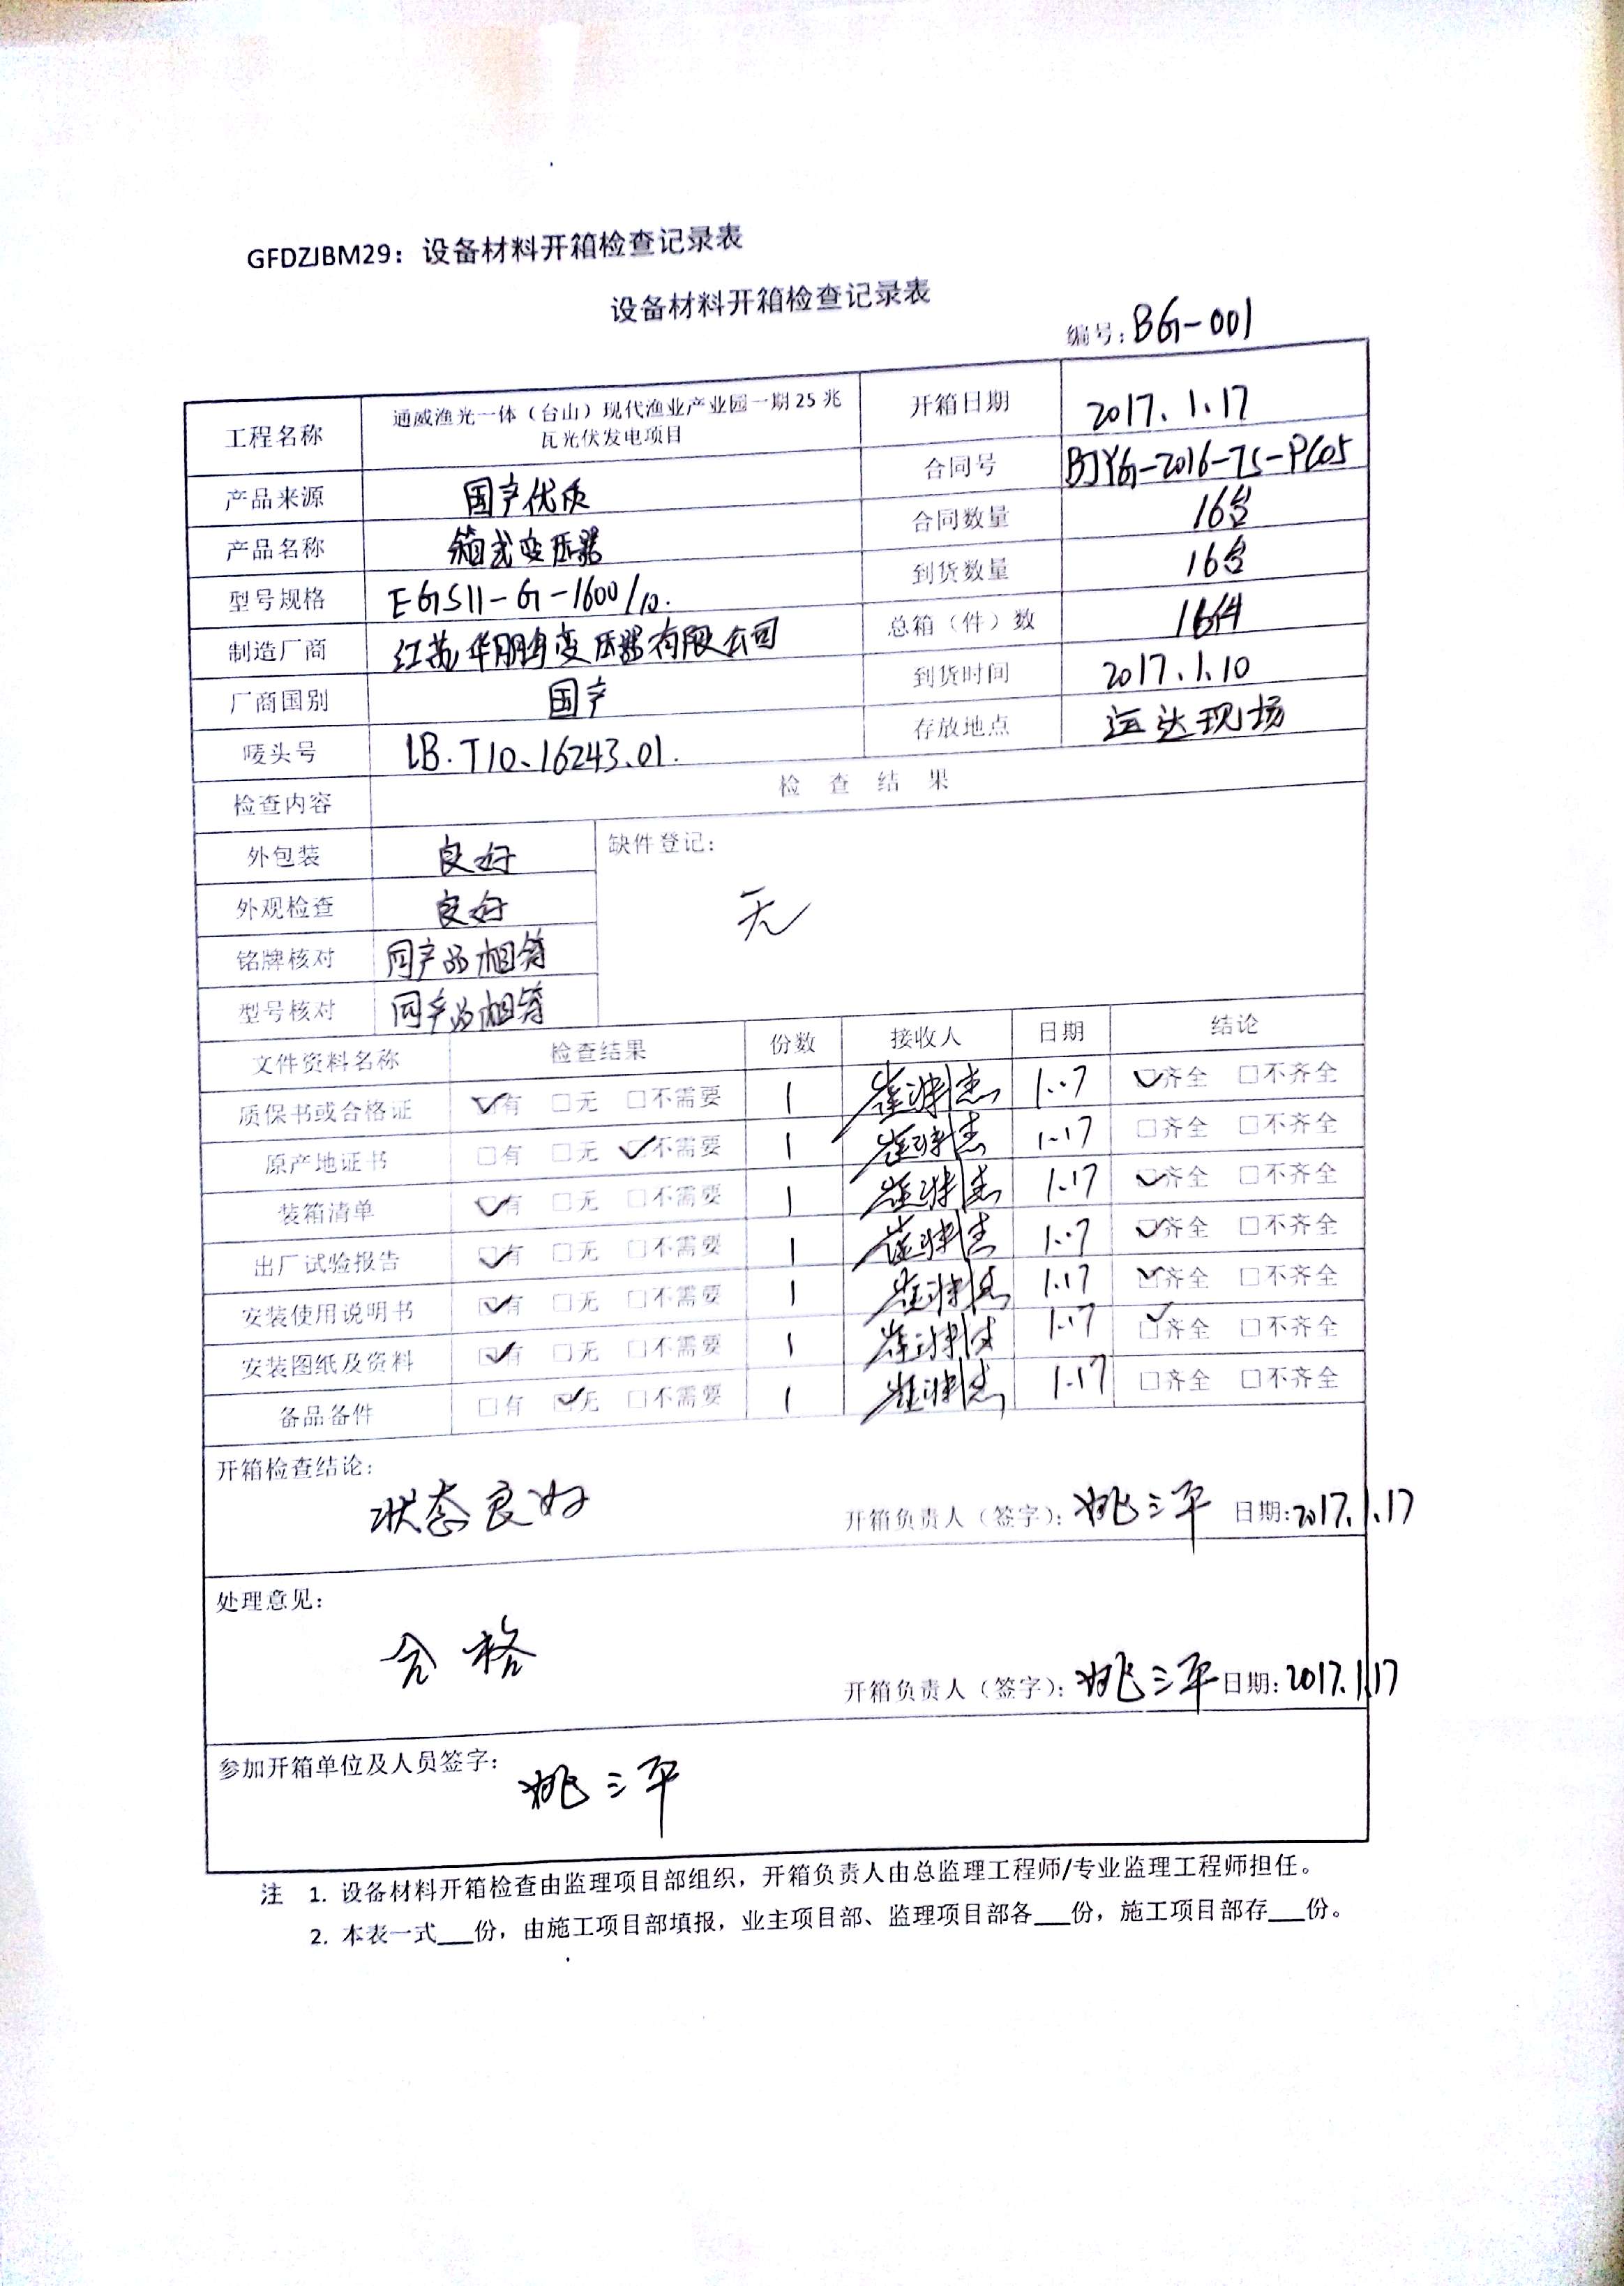 GFDZJBM29：设备材料开箱检查记录表
设备材料开箱检查记录表
编号：BG-001
工程名称 通威渔光一体（台山）现代渔业产业园一期25兆瓦光伏发电项目 开箱日期 2017.1.17
产品来源 国产优质 合同号 BJYG-2016-TS-PC05
产品名称 箱式变压器 合同数量 16台
型号规格 EGS11-G-1600/10. 到货数量 16台
制造厂商 江苏华鹏变压器有限公司 总箱（件）数 16件
厂商国别 国产 到货时间 2017.1.10
唛头号 1B.T10.16243.01. 存放地点 运达现场
检查内容 检 查 结 果
外包装 良好 缺件登记：
外观检查 良好 无
铭牌核对 同产品相符
型号核对 同产品相符
文件资料名称 检查结果 份数 接收人 日期 结论
质保书或合格证 ☑有 □无 □不需要 1 1.17 ☑齐全 □不齐全
原产地证书 □有 □无 ☑不需要 1 1.17 □齐全 □不齐全
装箱清单 ☑有 □无 □不需要 1 1.17 ☑齐全 □不齐全
出厂试验报告 ☑有 □无 □不需要 1 1.17 ☑齐全 □不齐全
安装使用说明书 ☑有 □无 □不需要 1 1.17 ☑齐全 □不齐全
安装图纸及资料 ☑有 □无 □不需要 1 1.17 ☑齐全 □不齐全
备品备件 □有 ☑无 □不需要 1 1.17 □齐全 □不齐全
开箱检查结论：
状态良好
开箱负责人（签字）：姚三平 日期：2017.1.17
处理意见：
合格
开箱负责人（签字）：姚三平 日期：2017.1.17
参加开箱单位及人员签字：姚三平
注 1. 设备材料开箱检查由监理项目部组织，开箱负责人由总监理工程师/专业监理工程师担任。
2. 本表一式___份，由施工项目部填报，业主项目部、监理项目部各___份，施工项目部存___份。